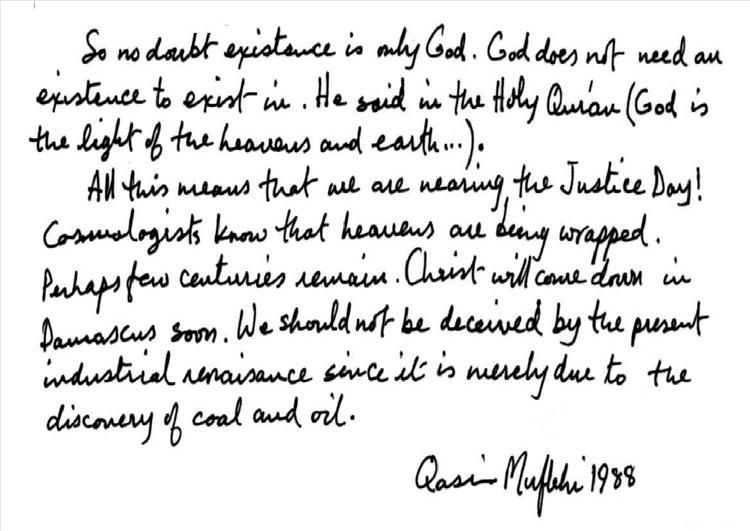 So no doubt existence is only God. God does not need an
existence to exist in. He said in the Holy Qurán (God is
the light of the heavens and earth...).
All this means that we are nearing the Justice Day!
Cosmologists know that heavens are being wrapped.
Perhaps few centuries remain. Christ will come down in
Damascus soon. We should not be deceived by the present
industrial renaisance since it is merely due to the
discovery of coal and oil.
Qasim Muflehi 1988